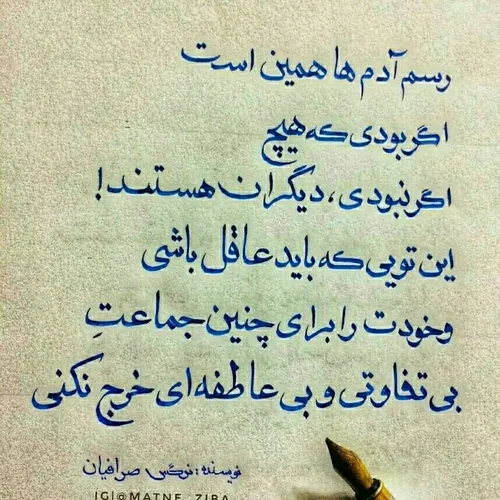 رسم آدم ها همین است
اگر بودی که هیچ
اگر نبودی، دیگران هستند!
این تویی که باید عاقل باشی
وخودت را برای چنین جماعتِ
بی تفاوتی و بی عاطفه ای خرج نکنی
نویسنده: نرگس صرافیان
IG|@MATNE_ZIBA